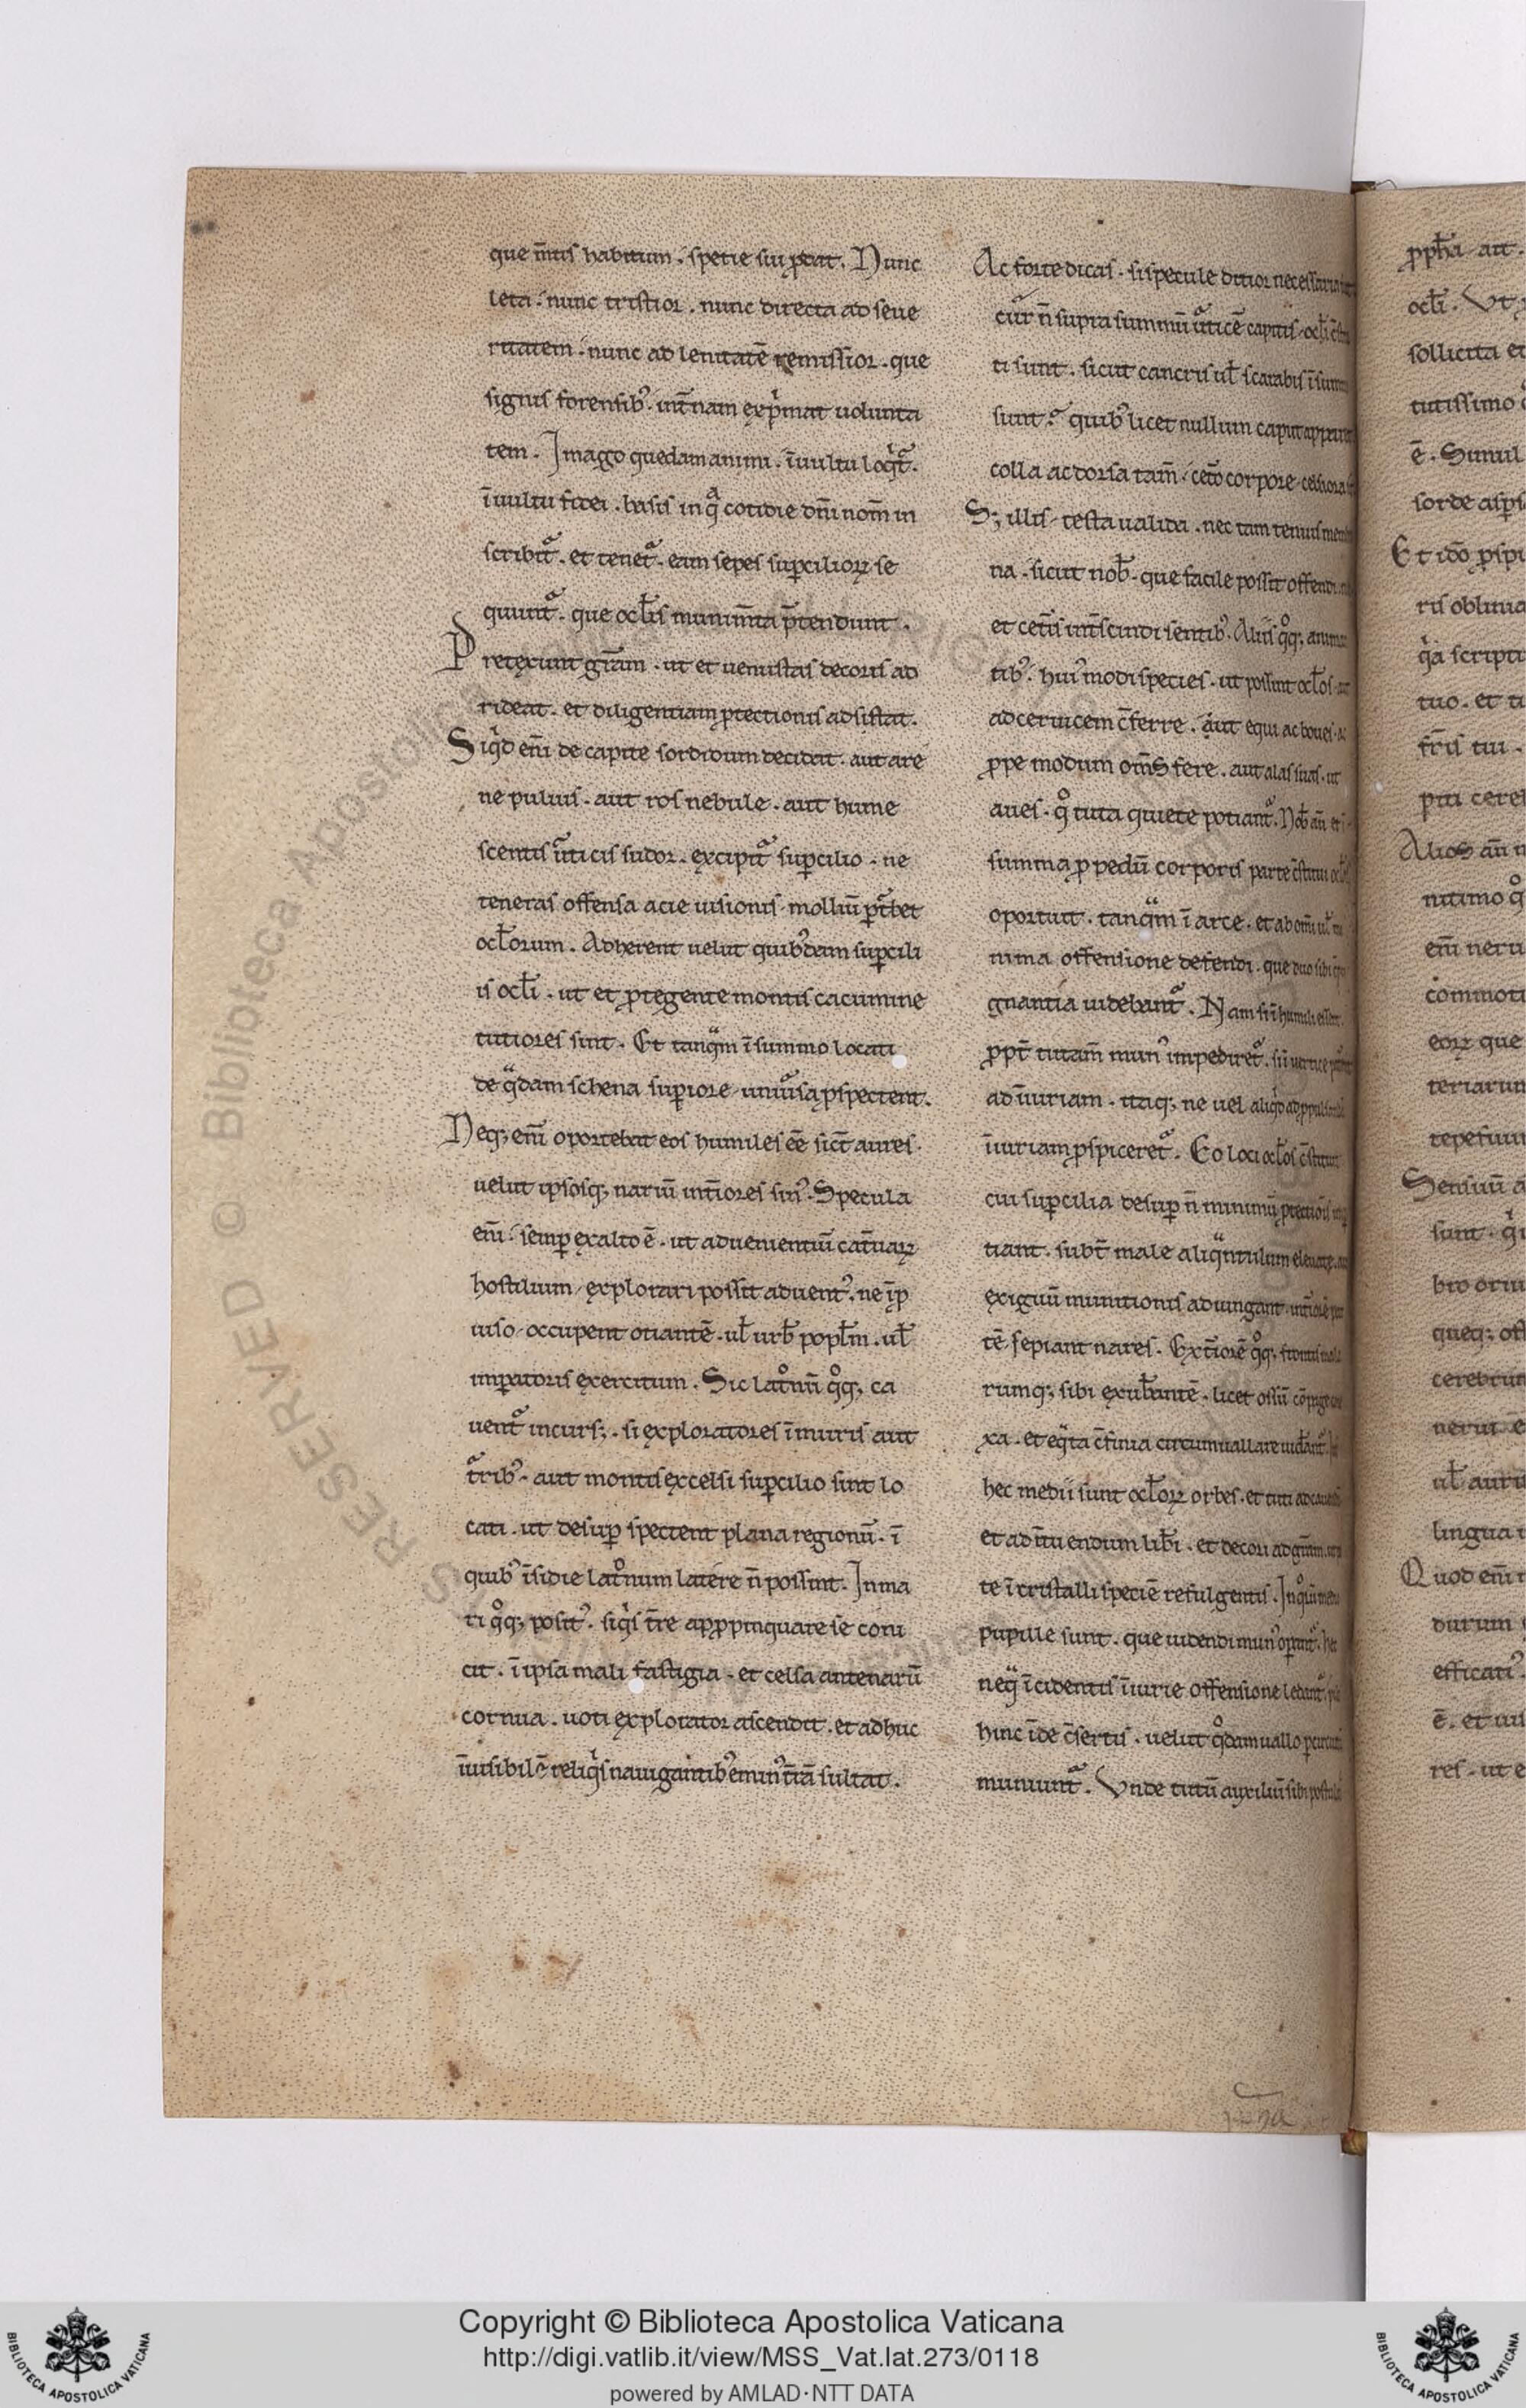 que m̄tis habitum . specie sui p̲rodat . Nunc
leta . nunc tristior . nunc directa ad seue
ritatem . nunc ad lenitatē remissior . que
signis forensib᾿ . int̄nam exp̄mat uolunta
tem . Imago quedam animi . ī uultu loq̄t᷑ .
ī uultu fidei . basis in q̄ cotidie dn̄i nom̄ in
scribit᷑ . et tenet᷑ . eam sepes sup̲cilioꝝ se
quunt᷑ . que ocl̄is munim̄ta p̄tendunt .
Pretexunt grām . ut et uenustas decoris ad
rideat . et diligentiam ꝓtectionis adsistat .
Siq̄d em̄ de capite sordidum decidat . aut are
ne puluis . aut ros nebule . aut hume
scentis ūticis sudor . excipit᷑ sup̲cilio . ne
teneras offensa acie uisionis molliū p̄t̄bet
ocl̄orum . Adherent uelut quib᾿dam sup̲cili
is ocl̄i . ut et ꝓtegente montis cacumine
tutiores sint . Et tanq̄m ī summo locati
de q̄dam schena sup̲iore uniūsa ꝓspectent .
Neq; em̄ oportebat eos humiles eē sic̄t aures .
uelut ipsosq; nariū int̄iores sin᾿ . Specula
em̄ . semp̲ ex alto ē . ut aduenientiū cat̄uaꝝ
hostilium explorari possit aduent᾿ . ne īp
uiso occupent otiantē . ul̄ urb̄ popl̄m . ul̄
imp̲atoris exercitum . Sic lat̊nū q̊q; ca
uent᷑ incurs; . si exploratores ī muris aut
t̄rib᾿ . aut montis excelsi sup̲cilio sint lo
cati . ut desup̲ spectent plana regionū . ī
quib᾿ īsidie lat̊num latere n̄ possint . In ma
ri q̊q; posit᾿ . siq̄s t̄re apꝓpinquare se coni
cit . ī ipsa mali fastigia . et celsa antenarū
cornua . uoti explorator ascendit . et adhuc
īuisibilē reliq̄s nauigantib᾿ emin᾿ t̄rā sultat .
Ac forte dicas . si specule ditior necessaria
cur n̄ supra summū ūticē capitis ocl̄i c̄stitu
ti sunt . sicut cancris ul̄ scarabis ī summo
sunt . quib᾿ licet nullum caput appareat
colla ac dorsa tam̄ . ceto corpore celsiora
S; illis testa ualida . nec tam tenuis membra
na . sicut nob̄ . que facile possit offendi
et cet̄is int̄scindi sentib᾿ . Aliis q̊q; animan
tib᾿ . hui᾿modi species . ut possint ocl̄os aut
ad ceruicem c̄ferre . aut equi ac boues . ac
ꝓpe modum om̄s fere . aut alas suas . ut
aues . q̊ tuta quiete potiant᷑ . Nob̄ aū et
summa ꝓpedū corporis parte c̄stitui ocl̄os
oportuit . tanq̄m ī arce . et ab om̄i ul̄ mi
nima offensione defendi . que duo sibi
gnantia uidebant᷑ . Nam si ī humili essent .
ꝓpt̄ tutam̄ mun᾿ impediret᷑ . si ī uertice
ad īuriam . itaq; ne uel aliq̄d ad
īuriam ꝓspiceret᷑ . Eo loci ocl̄os c̄stituit
cui sup̲cilia desup̲ n̄ minimū ꝓtectiōis
tiant . subt̄ male aliq̄ntulum eleuate
exiguū munitionis adiungant . int̄iorē par
tē sepiant nares . Ext̄iorē q̊q; frontis
rumq; sibi exub̄antē . licet ossiū
xa . et eq̄ta c̄finia circumuallare uidant᷑ .
hec medii sunt ocl̄oꝝ orbes . et tuti ad
et ad ītuendum lib̄i . et decori ad grām
te ī cristalli speciē refulgentis . In q̊ꝝ medio
pupille sunt . que uidendi mun᾿ . he
neq̄ īcidentis īiurie offensione ledant᷑
hinc īde c̄sertis . uelut q̊dam uallo
muniunt᷑ . Vnde tutū auxiliū sibi
ꝓph̄a ait .
ocl̄i . Vt
sollicita et
tutissimo
ē . Simul
sorde
Et idō ꝓspi
ris
q̄a scriptū
tuo . et tr
fr̄is tui .
pia cere
Alios aū n
em̄ neru
commoti
eoꝝ que
teriarum
tepefiun
Sensuū a
sunt . q̄
queq; off
cerebrum
nerui e
ul̄ auri
lingua
Quod em̄
durum
efficati᾿ .
ē . et uis
res . ut e
RESERVED © Biblioteca Apostolica
Copyright © Biblioteca Apostolica Vaticana
http://digi.vatlib.it/view/MSS_Vat.lat.273/0118
powered by AMLAD·NTT DATA
BIBLIOTECA APOSTOLICA VATICANA
BIBLIOTECA APOSTOLICA VATICANA